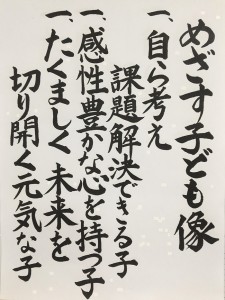 めざす子ども像
一、自ら考え
課題解決できる子
一、感性豊かな心を持つ子
一、たくましく未来を
切り開く元気な子